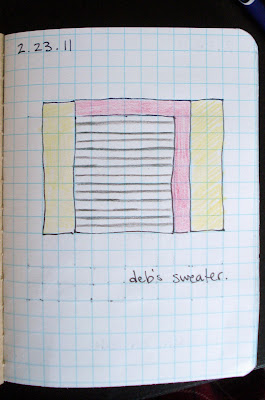 2.23.11
deb's sweater.